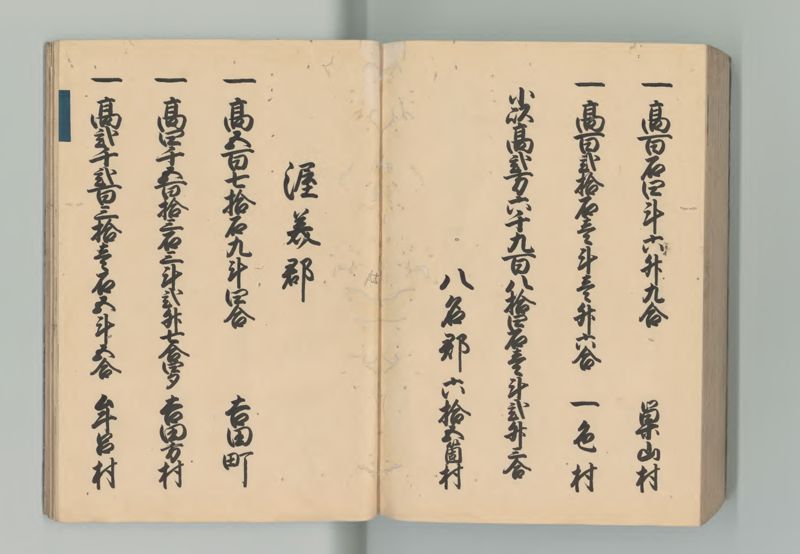 一高百石四斗六升九合 巣山村
一高百弐拾石壱斗壱升六合 一色村
小以高弐万六千九百八拾四石壱斗弐升三合
八名郡六拾五箇村
渥美郡
一高五百七拾石九斗四合 吉田町
一高四千五百拾三石三斗弐升七合四夕 吉田方村
一高弐千弐百三拾壱石五斗五合 牟呂村